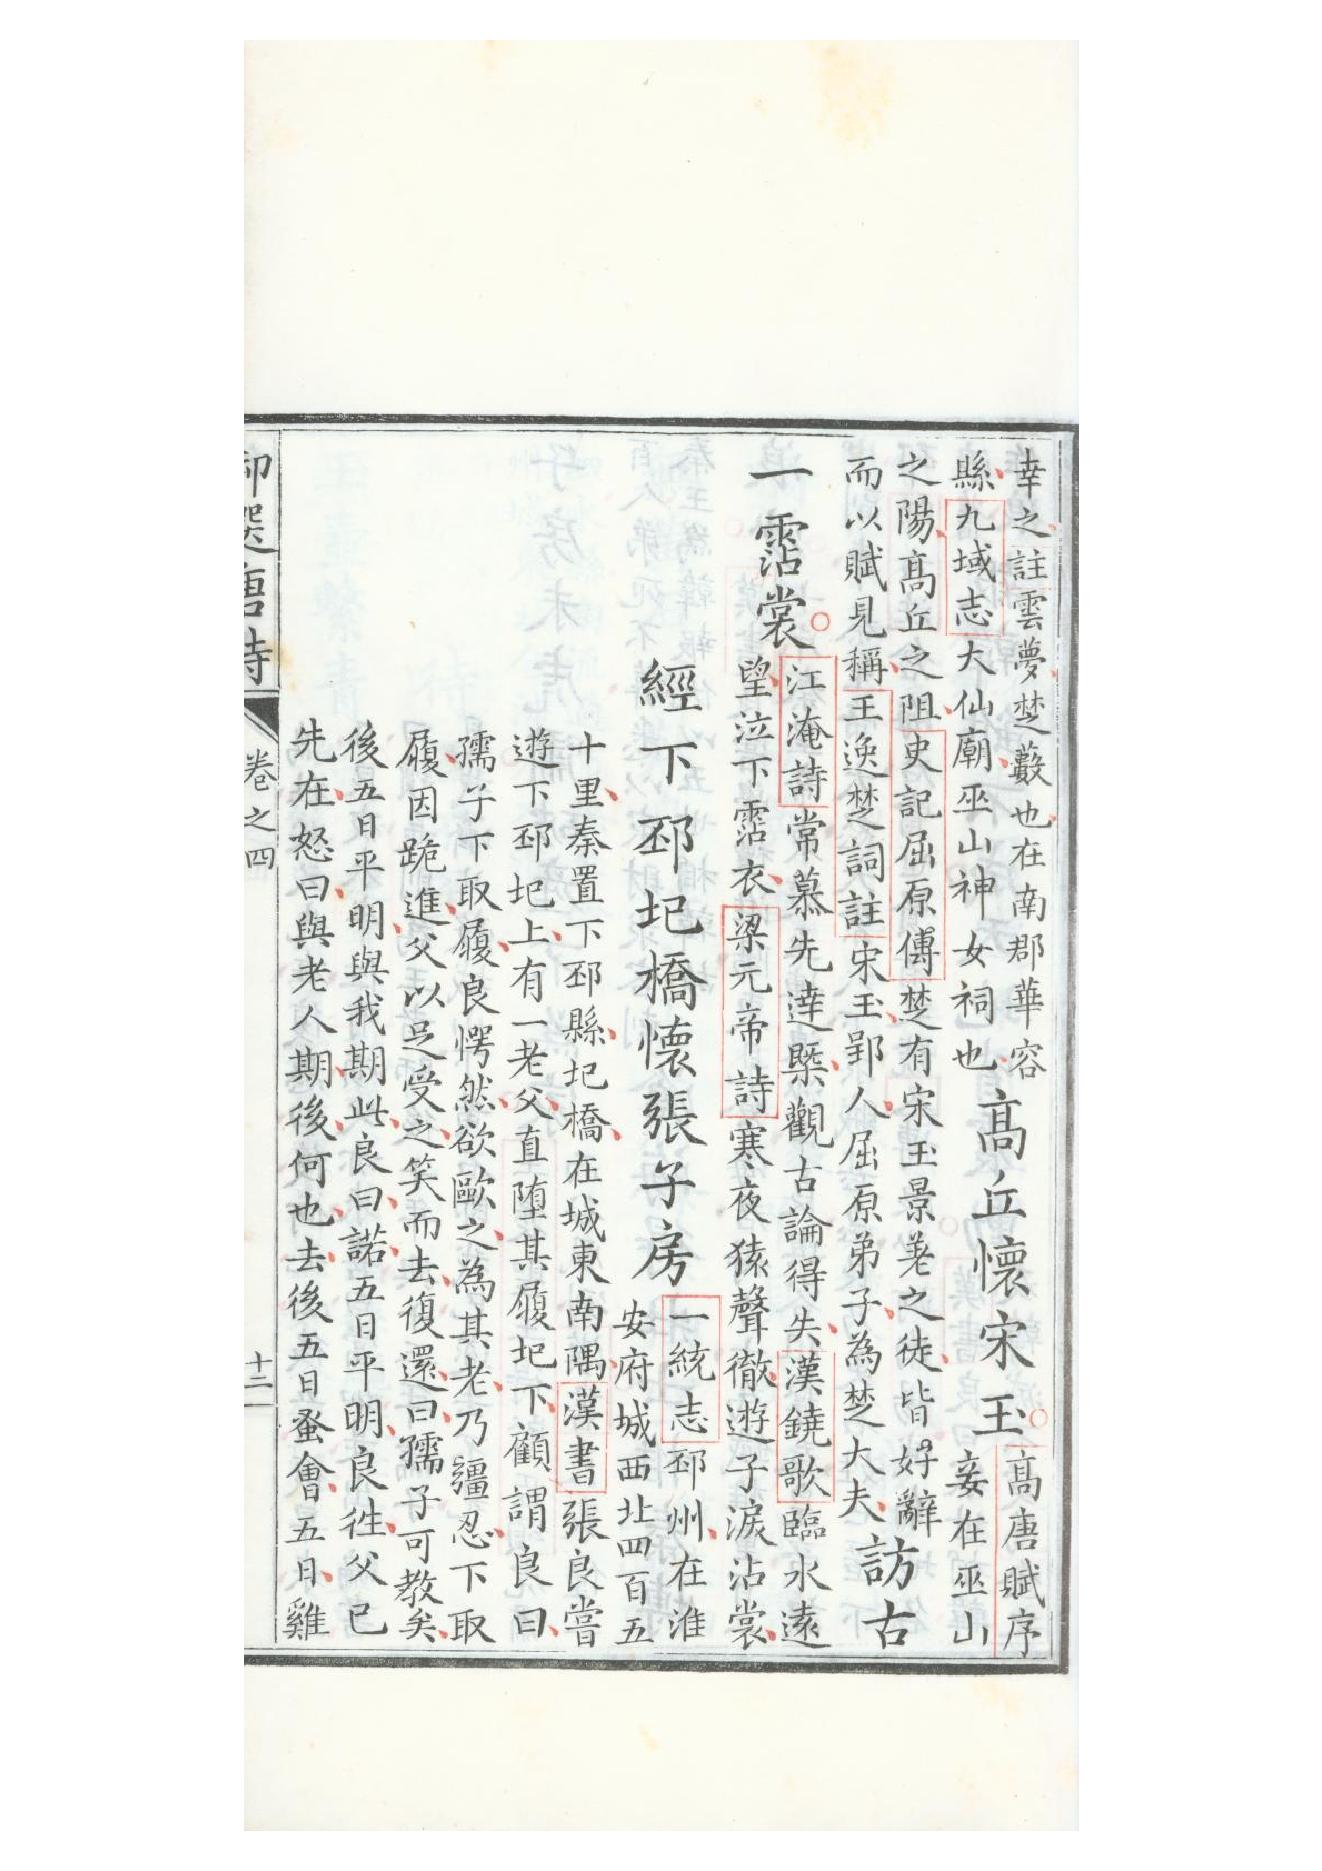 幸之註雲夢楚藪也在南郡華容
縣九域志大仙廟巫山神女祠也
高丘懷宋玉
高唐賦序
妾在巫山
之陽高丘之阻史記屈原傳楚有宋玉景差之徒皆好辭
而以賦見稱王逸楚詞註宋玉郢人屈原弟子為楚大夫
訪古
一霑裳
江淹詩常慕先達槩觀古論得失漢鐃歌臨水遠
望泣下霑衣梁元帝詩寒夜猿聲徹遊子淚沾裳
經下邳圯橋懷張子房
一統志邳州在淮
安府城西北四百五
十里秦置下邳縣圯橋在城東南隅漢書張良嘗
遊下邳圯上有一老父直墮其履圯下顧謂良曰
孺子下取履良愕然欲歐之為其老乃彊忍下取
履因跪進父以足受之笑而去復還曰孺子可教矣
後五日平明與我期此良曰諾五日平明良往父已
先在怒曰與老人期後何也去後五日蚤會五日雞
御選唐詩
卷之四
十二